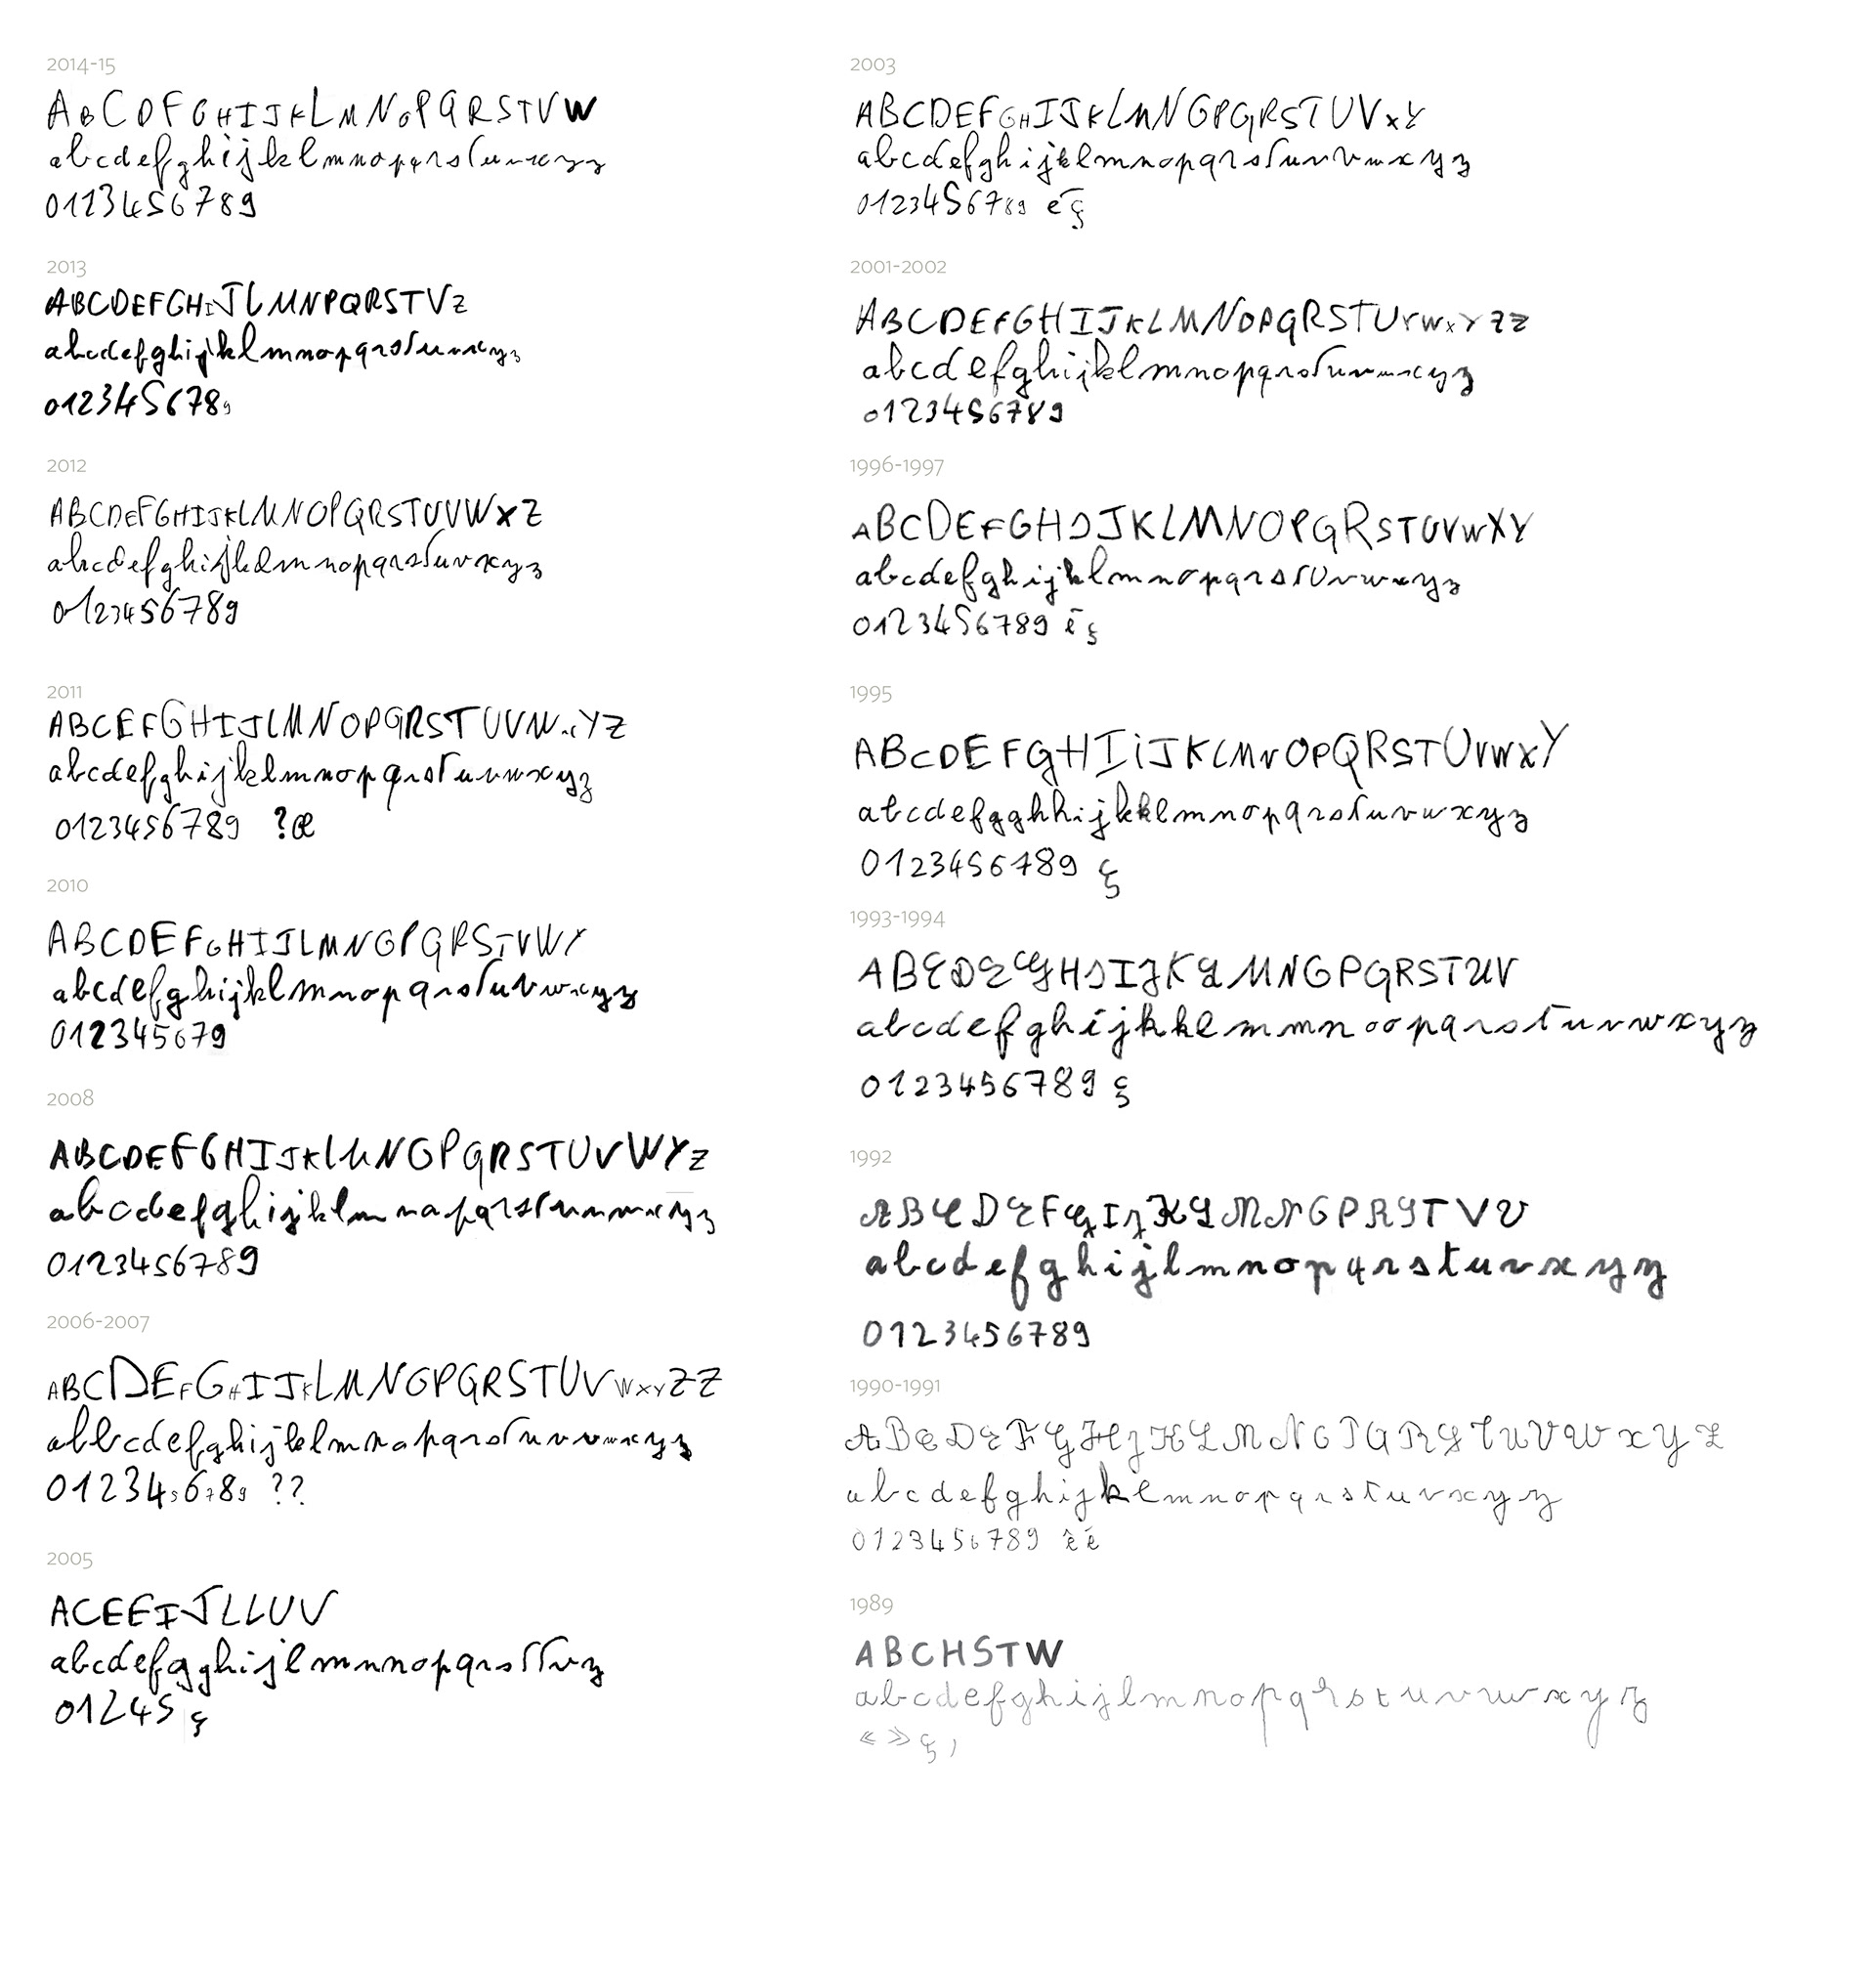 2014-15
A B C D F G H I J K L M N O P Q R S T V W
a b c d e f g h i j k l m n o p q r s t u v x y z
0 1 2 3 4 5 6 7 8 9
2013
A B C D E F G H I J L M N P Q R S T V Z
a b c d e f g h i j k l m n o p q r s t u v x y z
0 1 2 3 4 5 6 7 8 9
2012
A B C D E F G H I J K L M N O P Q R S T U V W X Z
a b c d e f g h i j k l m n o p q r s t u v x y z
0 1 2 3 4 5 6 7 8 9
2011
A B C E F G H I J L M N O P Q R S T U V W x Y Z
a b c d e f g h i j k l m n o p q r s t u v w x y z
0 1 2 3 4 5 6 7 8 9 ? œ
2010
A B C D E F G H I J L M N O P Q R S T V W Y
a b c d e f g h i j k l m n o p q r s t u v w x y z
0 1 2 3 4 5 6 7 9
2008
A B C D E F G H I J K L M N O P Q R S T U V W Y Z
a b c d e f g h i j k l m n o p q r s t u v w x y z
0 1 2 3 4 5 6 7 8 9
2006-2007
A B C D E F G H I J K L M N O P Q R S T U V W X Y Z Z
a b b c d e f g h i j k l m n o p q r s t u v v w x y z
0 1 2 3 4 5 6 7 8 9 ? ?
2005
A C E E I J L L U V
a b c d e f g g h i j l m n n o p q r s t t v z
0 1 2 4 5 ç
2003
A B C D E F G H I J K L M N O P Q R S T U V X Y
a b c d e f g h i j k l m n o p q r s t u v v w x y z
0 1 2 3 4 5 6 7 8 9 é ç
2001-2002
A B C D E F G H I J K L M N O P Q R S T U V W X Y Z Z
a b c d e f g h i j k l m n o p q r s t u v w x y z
0 1 2 3 4 5 6 7 8 9
1996-1997
A B C D E F G H I J K L M N O P Q R S T U V W X Y
a b c d e f g h i j k l m n o p q r s t u v w x y z
0 1 2 3 4 5 6 7 8 9 ê ç
1995
A B C D E F G H I i J K L M N O P Q R S T U V W X Y
a b c d e f g g h h i j k k l m n o p q r s t u v w x y z
0 1 2 3 4 5 6 7 8 9 ç
1993-1994
A B C D E G H I I J K L M N O P Q R S T U V
a b c d e f g h i j k k l m m n o o p q r s t u v w x y z
0 1 2 3 4 5 6 7 8 9 ç
1992
A B C D E F G I J K L M N O P R S T V V
a b c d e f g h i j l m n o p q r s t u v x y z
0 1 2 3 4 5 6 7 8 9
1990-1991
A B C D E F G H J K L M N O P Q R S T U V W X Y Z
a b c d e f g h i j k l m n o p q r s t u v x y z
0 1 2 3 4 5 6 7 8 9 ê é
1989
A B C H S T W
a b c d e f g h i j l m n o p q r s t u v w x y z
« » ç ,